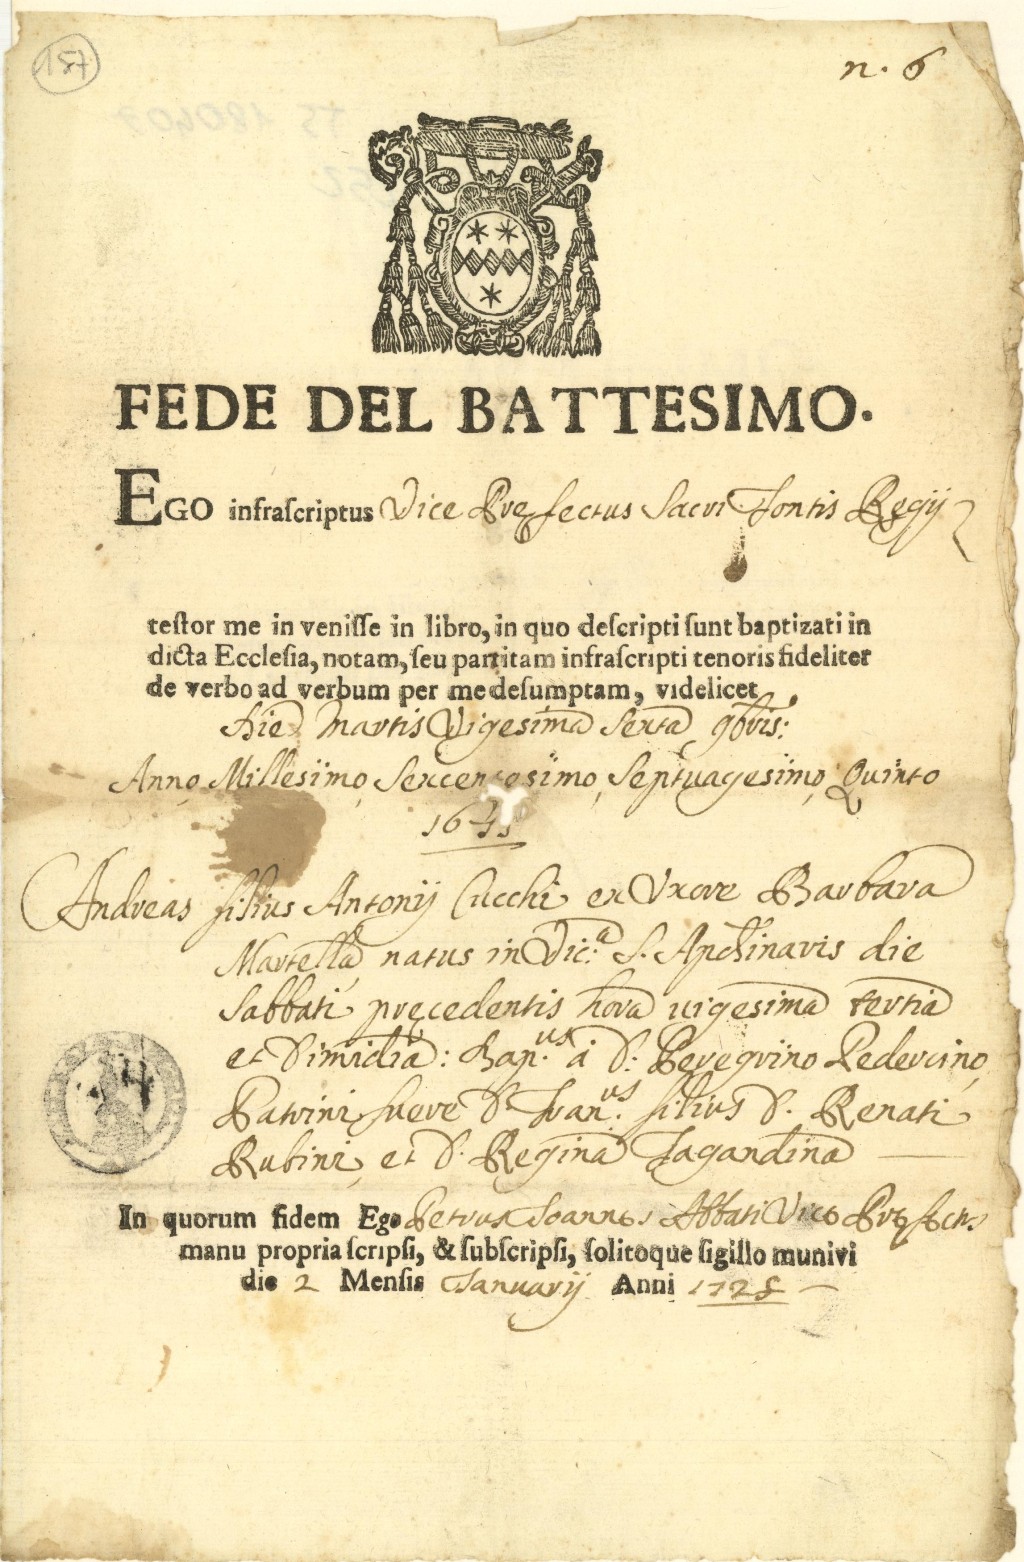 157
n. 6
FEDE DEL BATTESIMO.
EGO infraſcriptus Vice Prefectus Sacri Fontis Regij
teſtor me in veniſſe in libro, in quo deſcripti ſunt baptizati in
dicta Eccleſia, notam, ſeu partitam infraſcripti tenoris fideliter
de verbo ad verbum per me deſumptam, videlicet
Die Martis Vigesima Sexta 9bris:
Anno Millesimo, Sexcentesimo, Septuagesimo, Quinto
Andreas filius Antonij Cucchi ex Uxore Barbara
Martella natus in Vic.ª S. Apollinaris die
Sabbati precedentis hora uigesima tertia
et Dimidia: Bap.us à D. Peregrino Pedercino,
Patrini fuere D. Fran.us filius D. Renati
Rubini, et D. Regina Tagandina
In quorum fidem Ego Petrus Joannes Abbati Vice Prefectus
manu propria ſcripſi, & ſubſcripſi, ſolitoque ſigillo munivi
die 2 Menſis Januarij Anni 1725